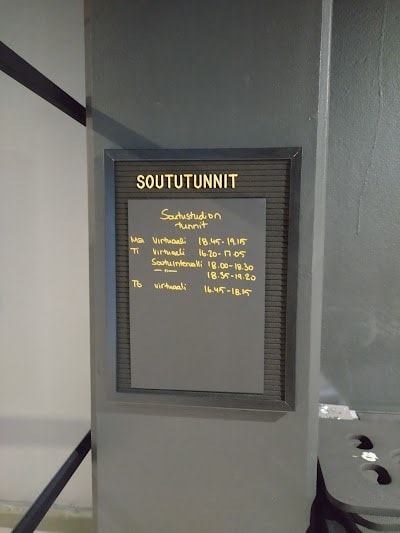 SOUTUTUNNIT
Soutustudion
tunnit
Ma virtuaali 18.45-19.15
Ti virtuaali 16.20-17.05
Soutuintervalli 18.00-18.30
—"— 18.35-19.20
To virtuaali 16.45-18.15